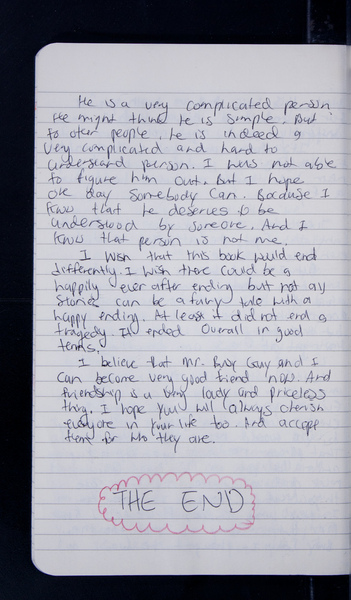 He is a very complicated person.
He might think he is simple. But
to other people, he is indeed a
very complicated and hard to
understand person. I was not able
to figure him out. But I hope
one day somebody can. Because I
know that he deserves to be
understood by someone. And I
know that person is not me.
I wish that this book would end
differently. I wish there could be a
happily ever after ending but not all
stories can be a fairy tale with a
happy ending. At least it did not end a
tragedy. It ended overall in good
terms.
I believe that Mr. Busy Guy and I
can become very good friend now. And
friendship is a very and priceless
thing. I hope you will always cherish
everyone in your life too. And accept
them for who they are.
THE END